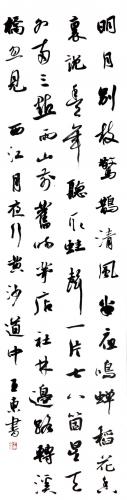 明月別枝驚鵲清風半夜鳴蟬稻花香
裏說豐年聽取蛙聲一片七八箇星天
外兩三點雨山前舊時茅店社林邊路轉溪
橋忽見 西江月夜行黃沙道中 王東書